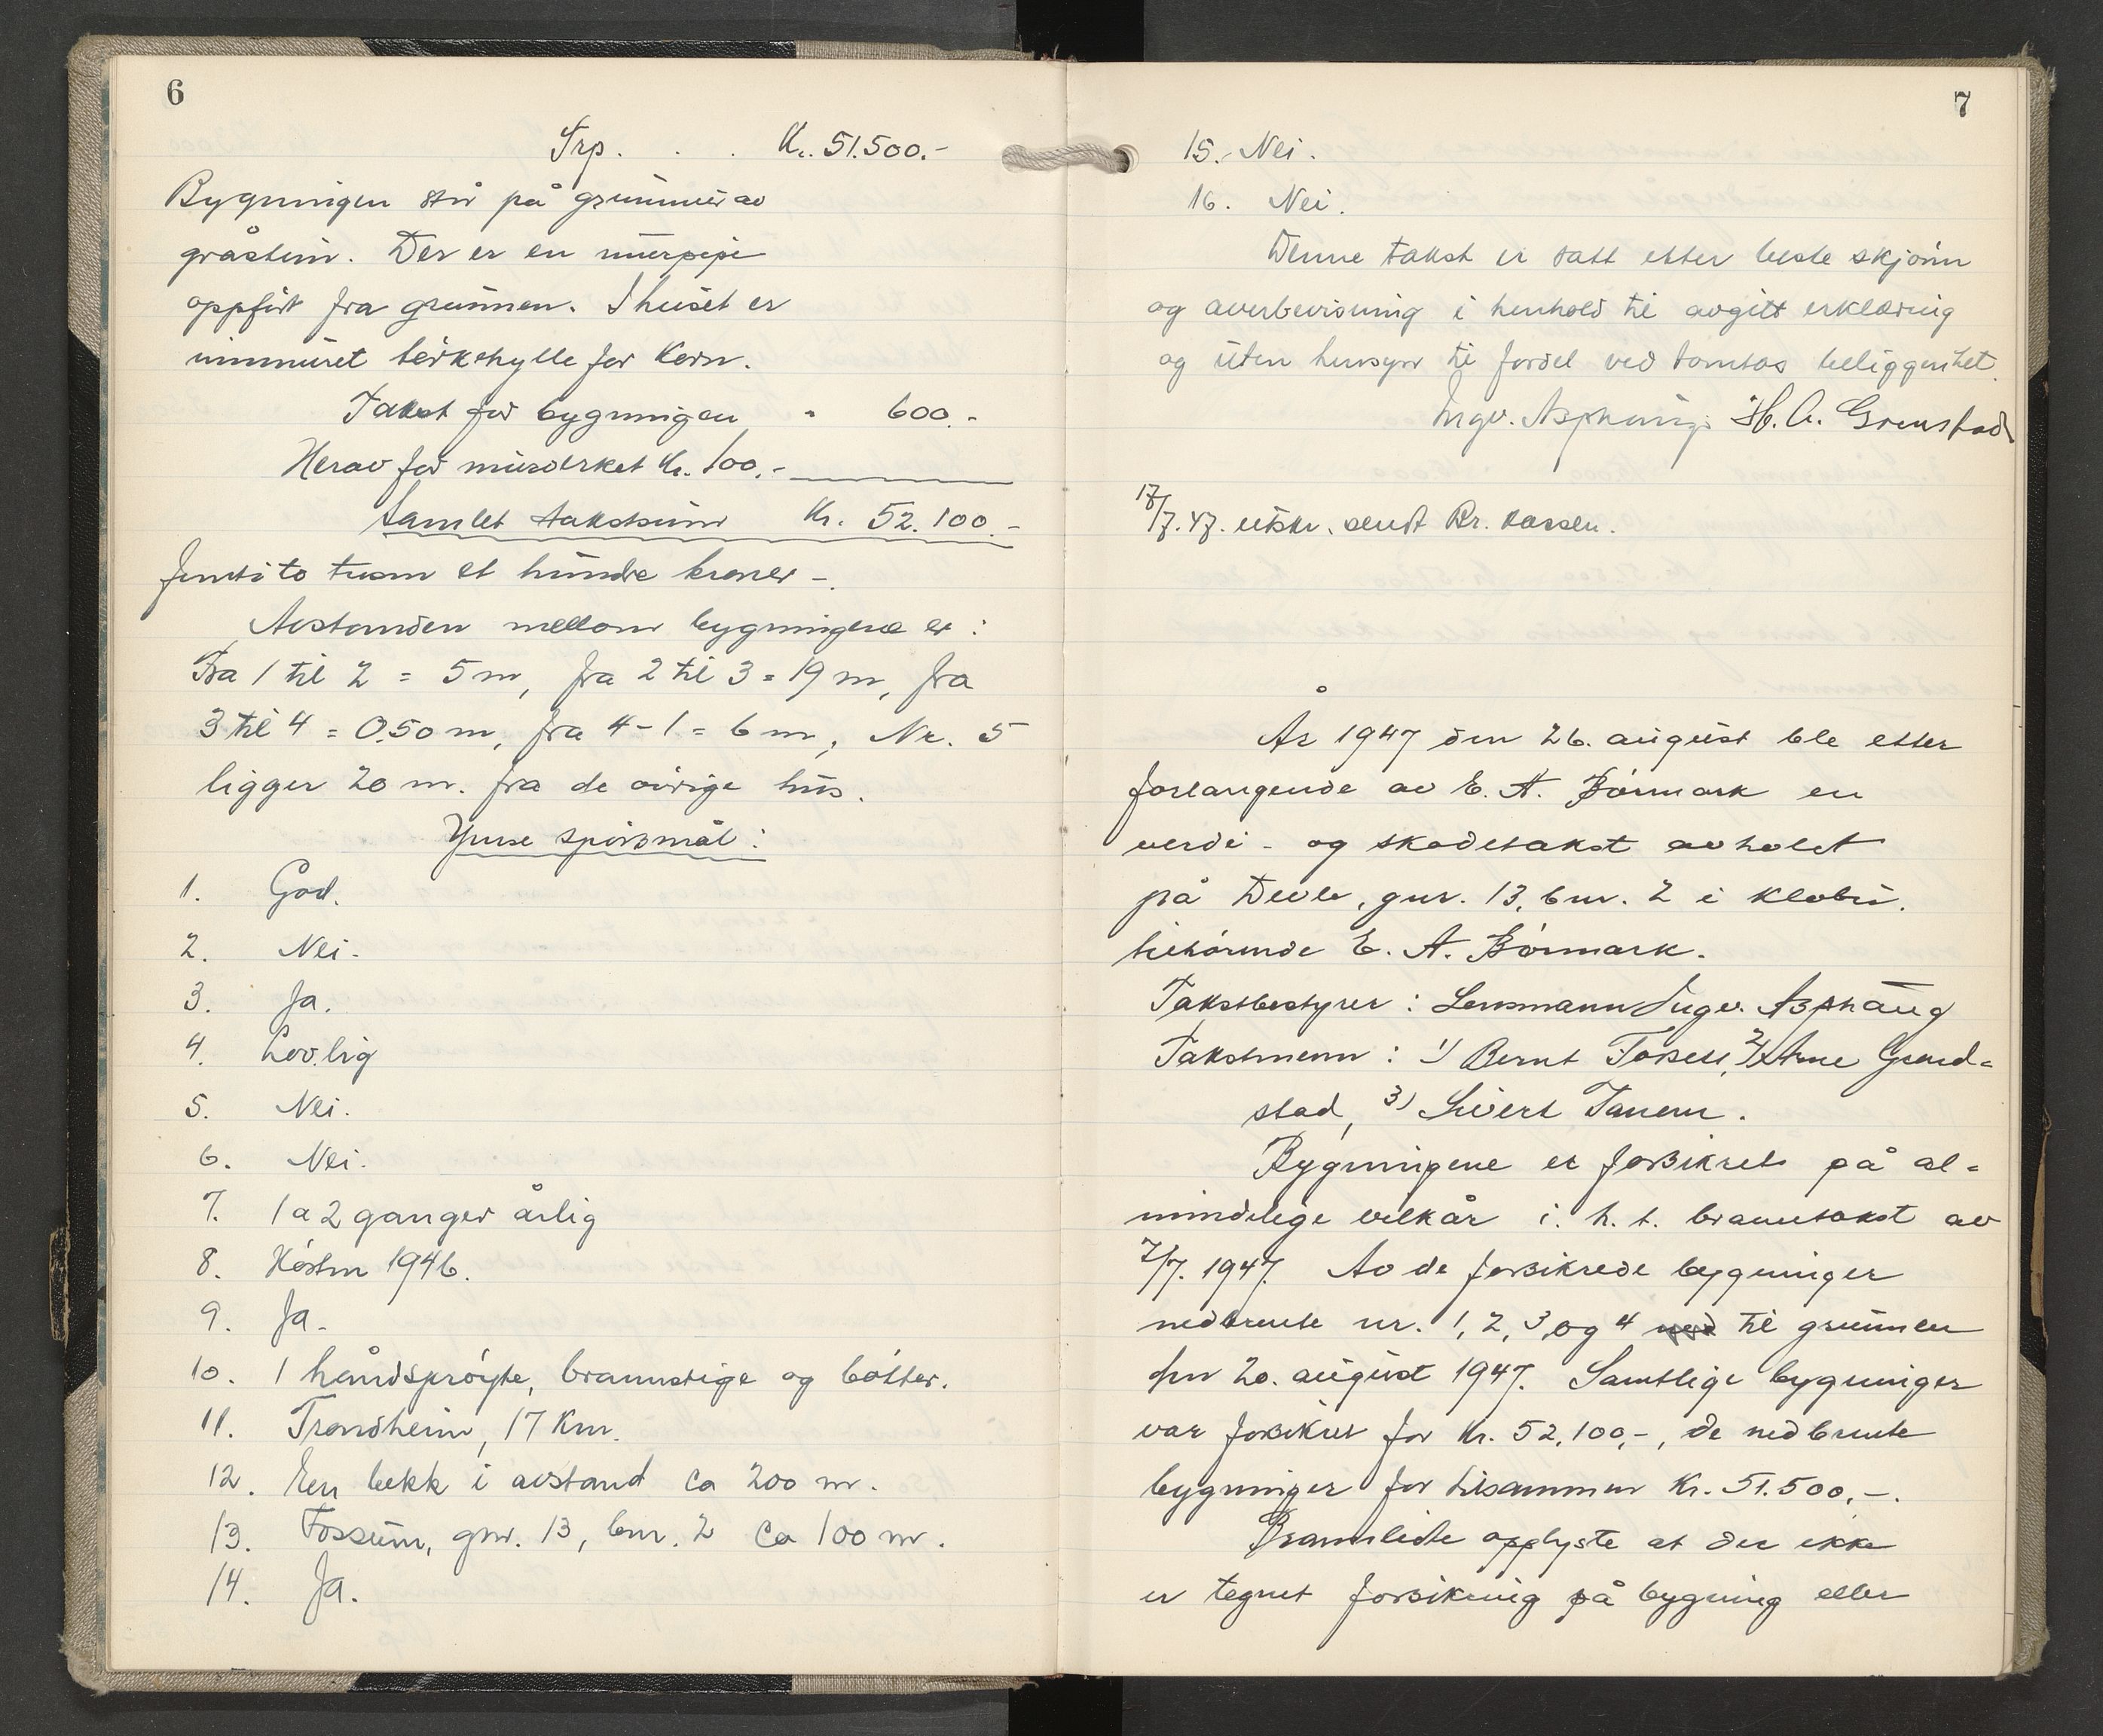 6
Trp. . . Kr. 51.500.-
Bygningen står på grunnmur av
gråstein. Der er en murpipe
oppført fra grunnen. I huset er
innmuret tørkehylle for korn.
Takst for bygningen " 600.-
Herav for murverket kr. 100.-
Samlet takstsum Kr. 52.100.-
Femtito tusen et hundre kroner -.
Avstanden mellom bygningene er:
Fra 1 til 2 = 5 m, fra 2 til 3 = 19 m, fra
3 til 4 = 0.50 m, fra 4 - 1 = 6 m, Nr. 5
ligger 20 m. fra de øvrige hus.
Ymse spørsmål:
1. God.
2. Nei.
3. Ja.
4. Lovlig
5. Nei.
6. Nei.
7. 1 a 2 ganger årlig
8. Høsten 1946.
9. Ja.
10. 1 håndsprøyte, brannstige og bøtter.
11. Trondheim, 17 km.
12. En bekk i avstand ca 200 m.
13. Fossum, gnr. 13, bnr. 2 ca 100 m.
14. Ja.
7
15. Nei.
16. Nei.
Denne takst er satt etter beste skjønn
og overbevisning i henhold til avgitt erklæring
og uten hensyn til fordel ved tomtas beliggenhet.
Ingv. Asphaug. H. A. Grenstad
17/7.47. utskr. sendt Br. kassen.
År 1947 den 26. august ble etter
forlangende av E. A. Børmark en
verdi- og skadetakst avholdt
på Devle, gnr. 13, bnr. 2 i Klæbu.
tilhørende E. A. Børmark.
Takstbestyrer: Lensmann Ingv. Asphaug
Takstmenn: 1) Bernt Forseth, 2) Arne Grend=
stad, 3) Sivert Tanem.
Bygningene er forsikret på al=
mindelige vilkår i. h. t. branntakst av
7/7. 1947. Av de forsikrede bygninger
nedbrente nr. 1, 2, 3, og 4 ned til grunnen
den 20. august 1947. Samtlige bygninger
var forsikret for kr. 52.100,-, de nedbrente
bygninger for tilsammen kr. 51.500,-.
Brannlidte opplyste at der ikke
er tegnet forsikring på bygning eller